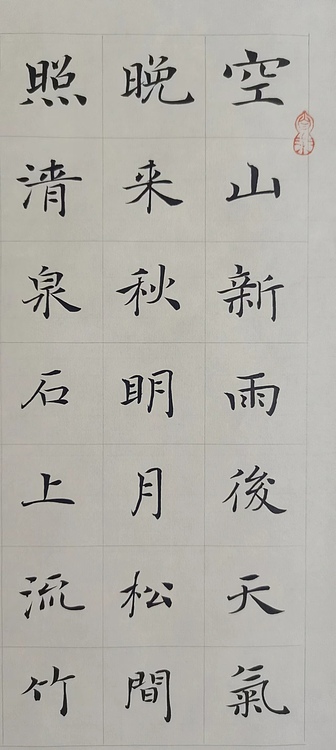 空山新雨後天氣
晚来秋明月松間
照清泉石上流竹